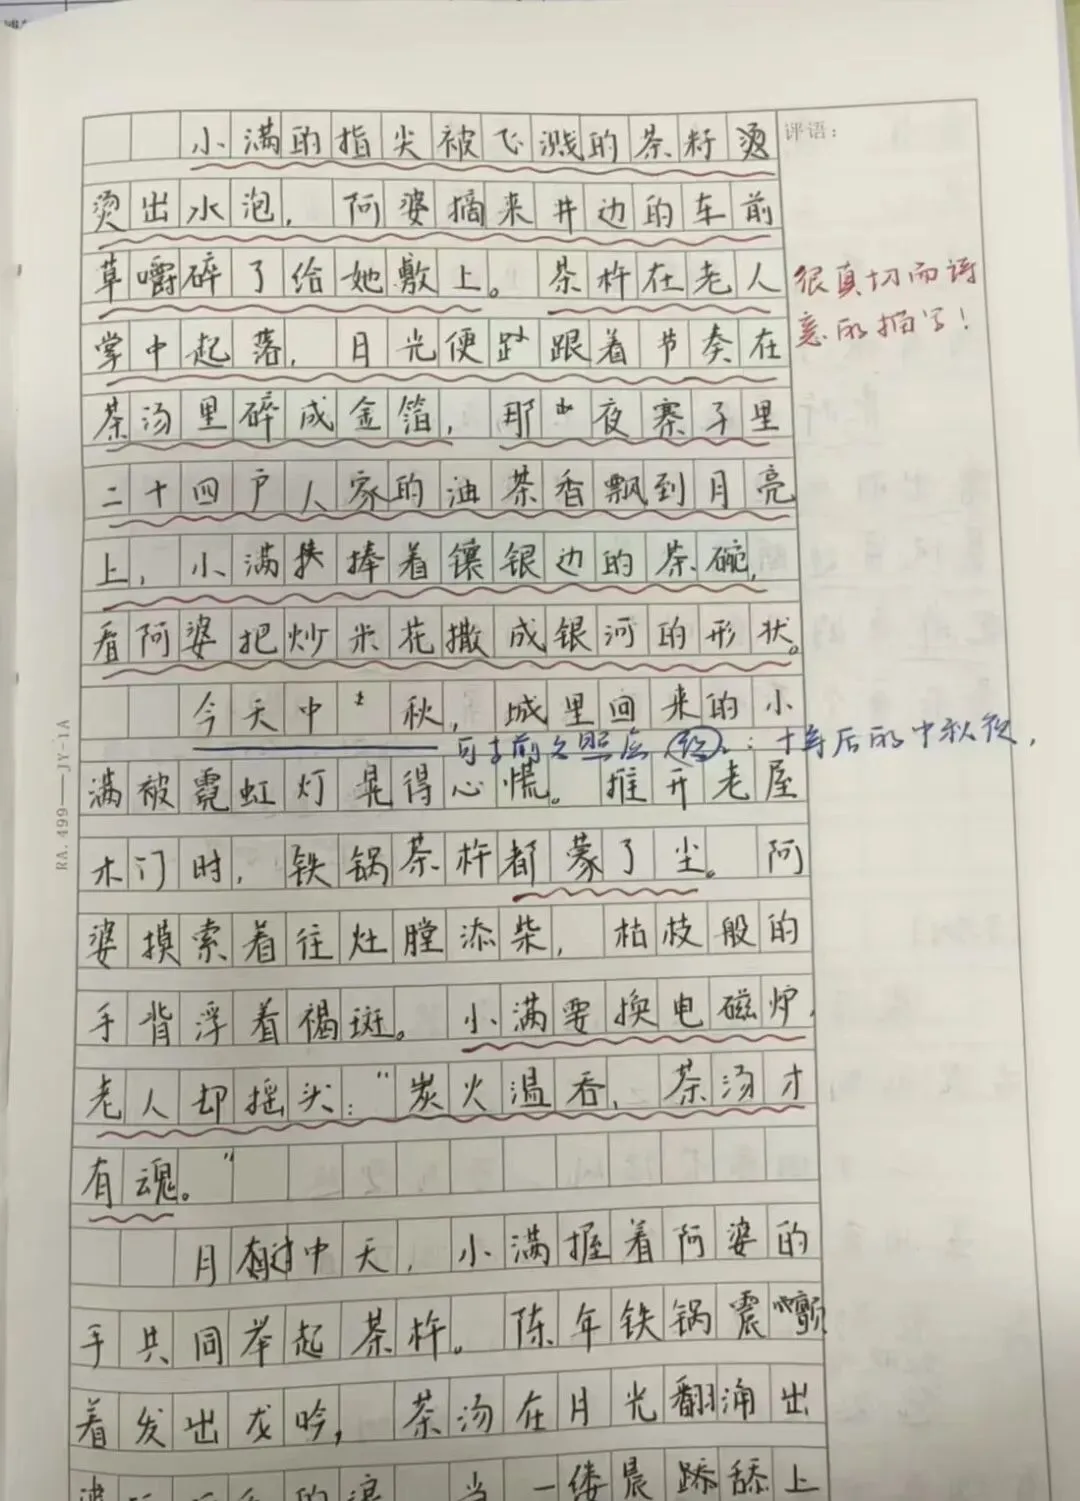 评语：
小满的指尖被飞溅的茶籽烫
烫出水泡，阿婆摘来井边的车前
草嚼碎了给她敷上。茶杵在老人
很真切而诗
掌中起落，月光便跟着节奏在
意的描写！
茶汤里碎成金箔，那夜寨子里
二十四户人家的油茶香飘到月亮
上，小满捧着镶银边的茶碗，
看阿婆把炒米花撒成银河的形状。
今天中秋，城里回来的小
可与前文照应：十年后的中秋夜，
满被霓虹灯晃得心慌。推开老屋
木门时，铁锅茶杵都蒙了尘。阿
婆摸索着往灶膛添柴，枯枝般的
手背浮着褐斑。小满要换电磁炉，
老人却摇头：“炭火温吞，茶汤才
有魂。”
月过中天，小满握着阿婆的
手共同举起茶杵。陈年铁锅震颤
着发出龙吟，茶汤在月光翻涌出
当一缕晨跡舔上
RA.499——JY-1A